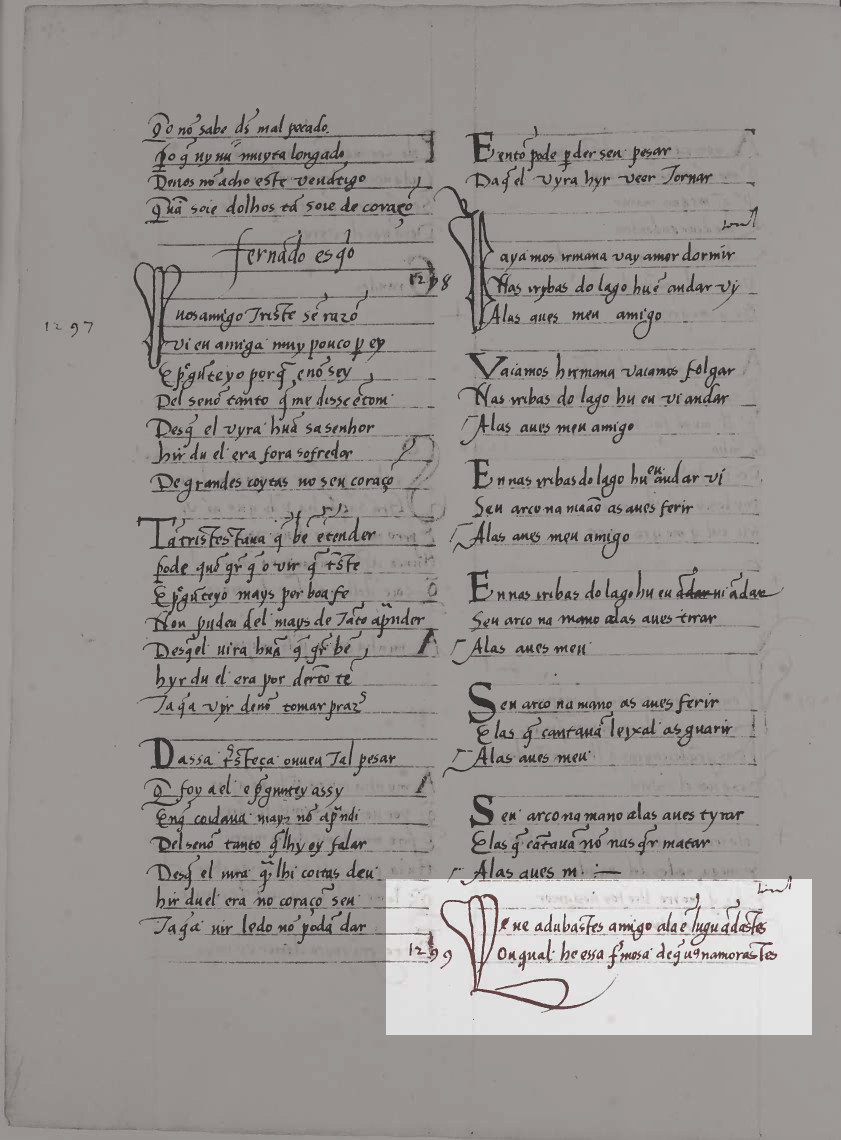 Q̃o nõ sabe ds̃ mal pecado
Po q̃ ny nũ muyta longado
Denos nõ acho este vendtigo
Quã soie dolhos tã soie de coraçõ
fernãdo esq̃o
1297
nosamigo Triste sẽ razõ
vi eu amiga muy pouco p ey
E pg̃ũteyo porq̃ e nõ sey
Del senõ tanto q̃ me disse etom
Desq̃ el vyra huã sa senhor
hir du el era fora sofredor
De grandes coytas no seu coraçõ
Tã tristestaua q̃ bẽ ẽtender
pode quẽ qr̃ q̃ o vir q̃ tr̃ste
E pg̃ũteyo mays por boa fe
Non pudeu del mays de Tãto ap̃nder
Desq̃el uira huã q̃ qr̃ bẽ
hyr du el era por derto tẽ
Ta q̃a vyr denõ tomar praz
Dassa tr̃steça ouueu Tal pesar
Q foy a el e pg̃untey assy
Enq̃ coidaua mays nõ ap̃ndi
Del senõ tanto q̃lhy ey falar
Desq̃ el uira q̃ lhi coitas deu
hir du el era no coraçõ seu
Ta q̃a uir ledo nõ podã dar
Eento pode p̱der seu pesar
Daq̃ el vyra hyr veer Tornar
1298
ayamos irmana vay amor dormir
Nas irybas do lago hu eu andar vy
Alas aues meu amigo
Vaiamos hirmana vaiamos folgar
Nas iribas do lago hu eu vi andar
Alas aues meu amigo
En nas iribas do lago hu eu andar vi
Seu arco na maão as aues ferir
Alas aues meu amigo
En nas iribas do lago hu eu ui ãdar
Seu arco na mano alas aues tirar
Alas aues meu
Seu arco na mano as aues ferir
Elas q̃ cantauã leixal as guarir
Alas aues meu
Seu arco na mano alas aues tyrar
Elas q̃ cãtauã nõ nas q̃r matar
Alas aues m
1299
e ne adubastes amigo ala ẽ lugu ãdastes
Ou qual he essa fr̃mosa de q̃ uꝯ namorastes